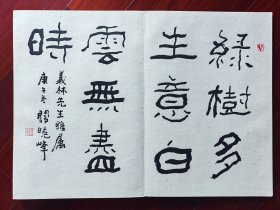 綠樹多
生意白
雲無盡
時
義林先生雅屬
庚午冬 關曉峰